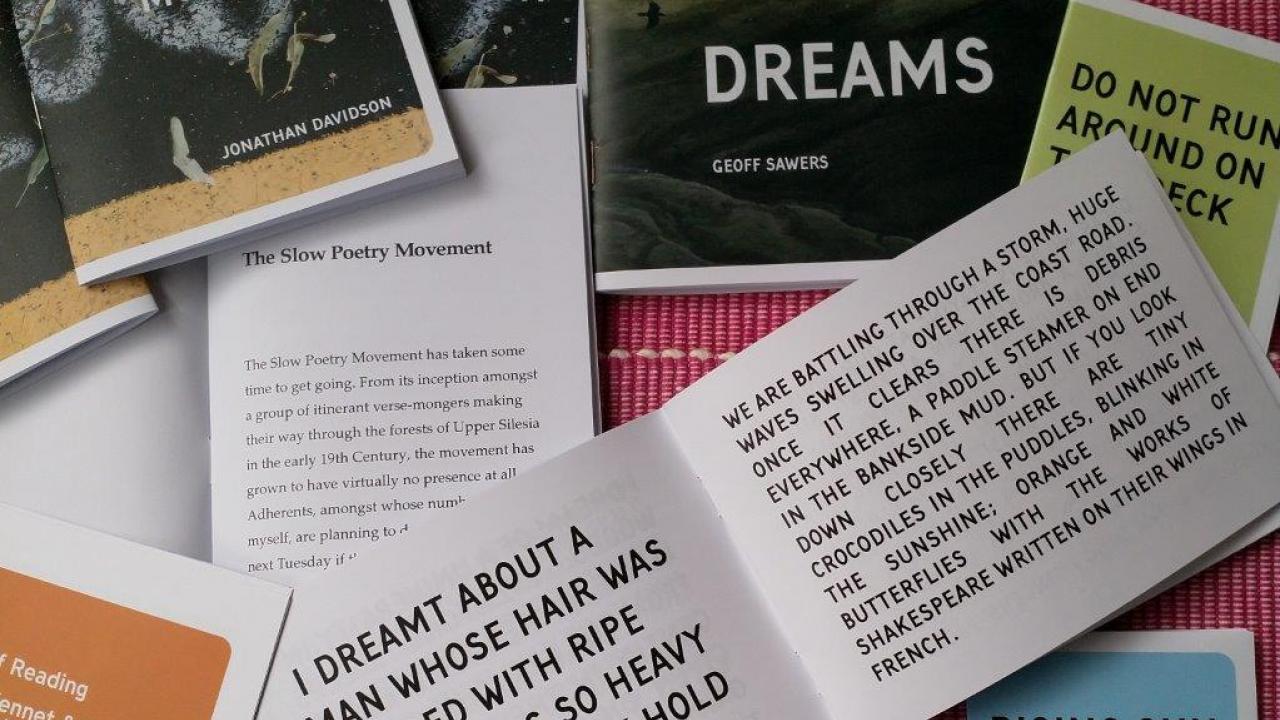 JONATHAN DAVIDSON
DREAMS
GEOFF SAWERS
DO NOT RUN
AROUND ON
The Slow Poetry Movement
The Slow Poetry Movement has taken some
time to get going. From its inception amongst
a group of itinerant verse-mongers making
their way through the forests of Upper Silesia
in the early 19th Century, the movement has
grown to have virtually no presence at all
Adherents, amongst whose
myself, are planning to
next Tuesday if
WE ARE BATTLING THROUGH A STORM, HUGE
WAVES SWELLING OVER THE COAST ROAD.
ONCE IT CLEARS THERE IS DEBRIS
EVERYWHERE, A PADDLE STEAMER ON END
IN THE BANKSIDE MUD. BUT IF YOU LOOK
DOWN CLOSELY THERE ARE TINY
CROCODILES IN THE PUDDLES, BLINKING IN
THE SUNSHINE; ORANGE AND WHITE
BUTTERFLIES WITH THE WORKS OF
SHAKESPEARE WRITTEN ON THEIR WINGS IN
FRENCH.
I DREAMT ABOUT A
MAN WHOSE HAIR WAS
WITH RIPE
SO HEAVY
HOLD
Reading